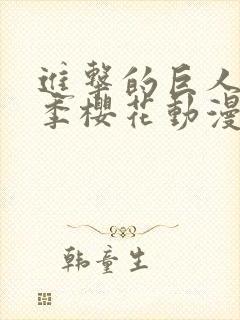 進擊的巨人
季櫻花動漫
韩童生